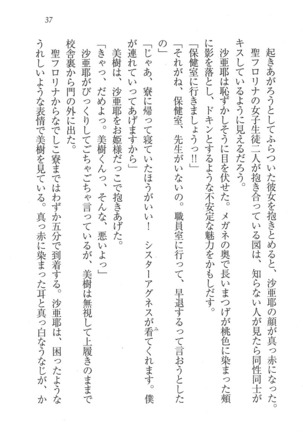 37
起きあがろうとしてふらついた彼女を抱きとめると、沙亜耶の顔が真っ赤になった。
聖フロリナの女子生徒二人が抱き合っている図は、知らない人が見たら同性同士が
キスしているように見えるだろう。
沙亜耶は恥ずかしそうに目を伏せた。メガネの奥で長いまつげが桃色に染まった頬
に影を落とし、ドキンとするような不安定な魅力をかもしだす。
「保健室に行きましょうっ!!」
「それがね、保健室、先生がいないの。職員室に行って、早退するって言おうとした
「じゃあ、寮に帰って寝ていたほうがいい！　シスターアグネスが看てくれます。僕
が連れていってあげますから」
美樹は、沙亜耶をお姫様だっこで抱きあげた。
「きゃっ、だめよっ。美樹くんっ、そんな、悪いよっ」
沙亜耶がびっくりしてごちゃごちゃ言っているが、美樹は無視して上履きのままで
校舎裏から門の外に出た。
聖フロリナからなでしこ寮まではわずか五分で到着する。沙亜耶は、困ったような
うれしいような表情で美樹を見ている。真っ赤に染まった耳と真っ白なうなじが、か